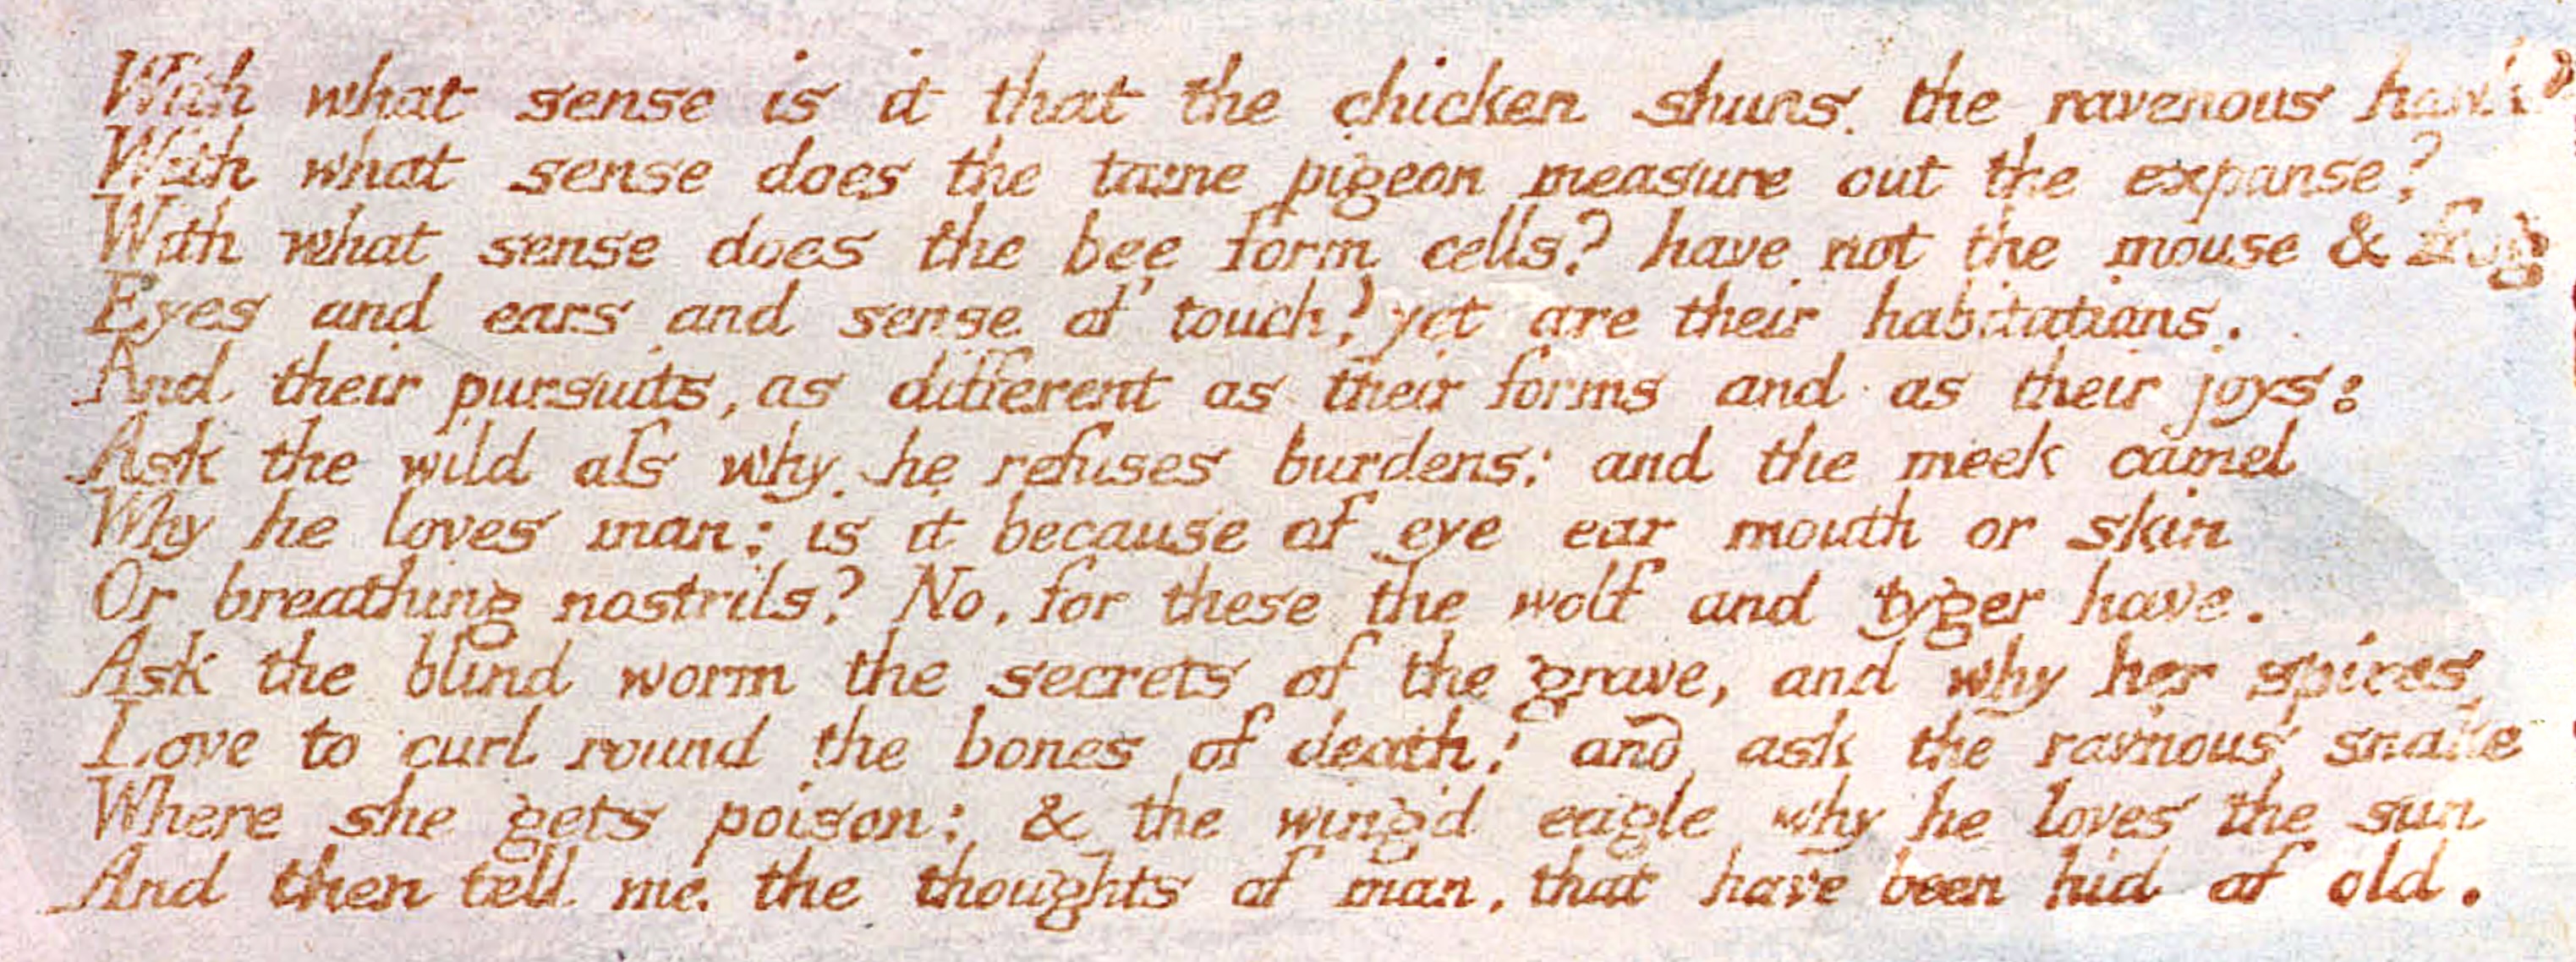 With what sense is it that the chicken shuns the ravenous hawk?
With what sense does the tame pigeon measure out the expanse?
With what sense does the bee form cells? have not the mouse & frog
Eyes and ears and sense of touch? yet are their habitations.
And their pursuits, as different as their forms and as their joys:
Ask the wild aſs why he refuses burdens: and the meek camel
Why he loves man: is it because of eye ear mouth or skin
Or breathing nostrils? No. for these the wolf and tyger have.
Ask the blind worm the secrets of the grave, and why her spires
Love to curl round the bones of death; and ask the rav'nous snake
Where she gets poison: & the wing'd eagle why he loves the sun
And then tell me the thoughts of man, that have been hid of old.